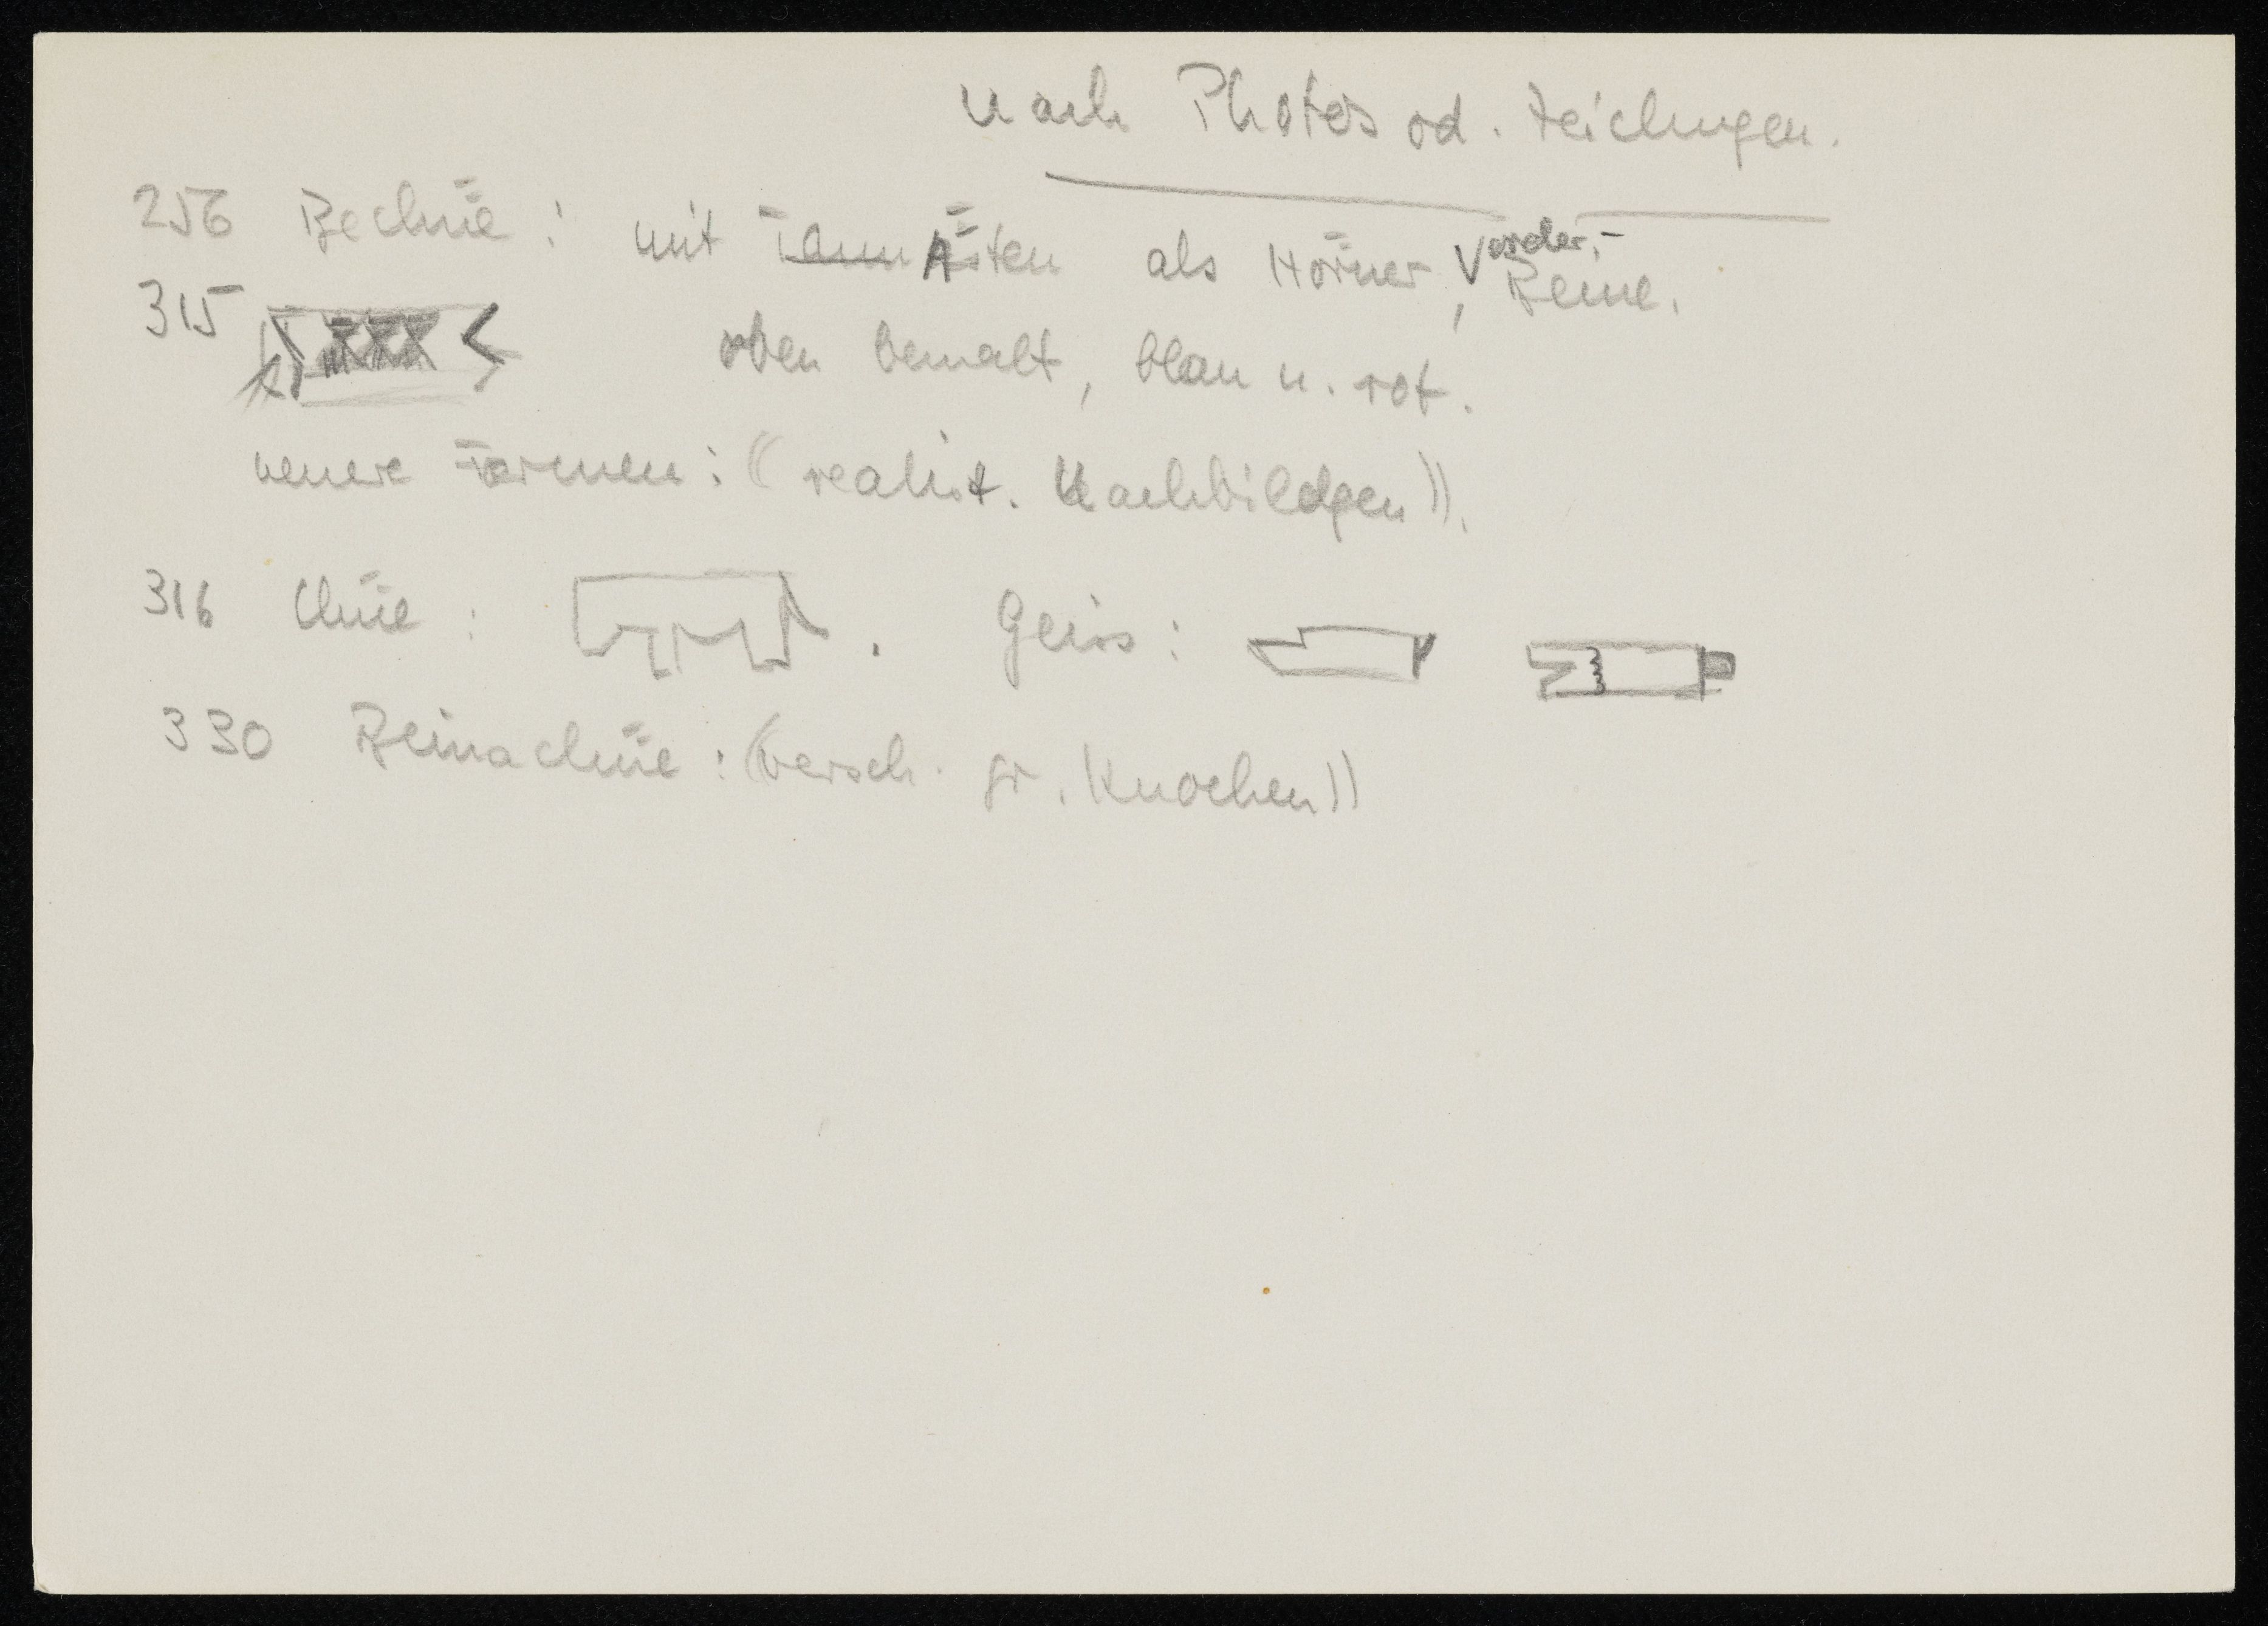 Nach Photos od. Zeichngen.
256 Bechüe: mit Tann Ästen als Hörner, Vorder-Beine.
315 oben bemalt, blau u. rot.
neuere Formen: ((realist. Nachbildgen)).
316 Chüe: . Geiss:
330 Beinachüe: ((versch. gr. Knochen))